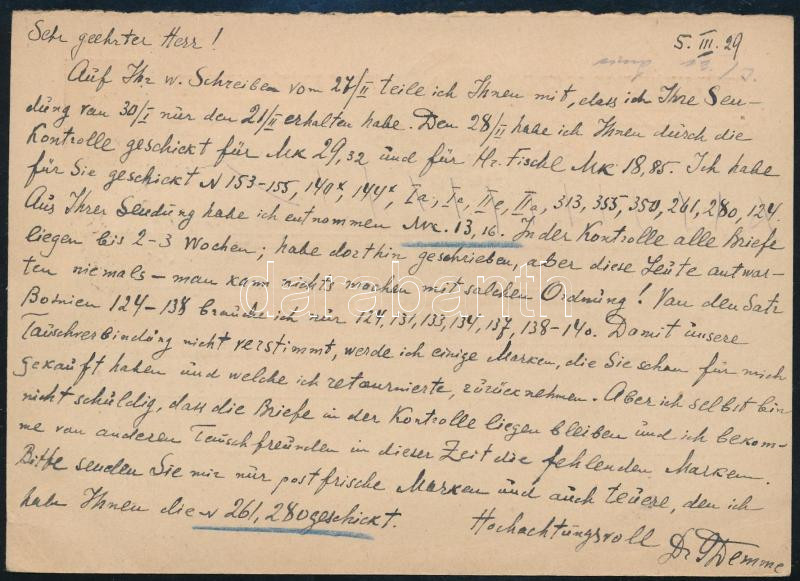 Sehr geehrter Herr! 5. III. 29
Auf Ihr w. Schreiben vom 27/II teile ich Ihnen mit, dass ich Ihre Sen-
dung van 30/I nur den 21/II erhalten habe. Den 28/II habe ich Ihnen durch die
Kontrolle geschickt für MK 29,32 und für Hr. Fischl MK 18,85. Ich habe
für Sie geschickt N 153-155, 140x, 144x, Ia, Ie, IIe, IIa, 313, 355, 350, 261, 280, 124.
Aus Ihrer Sendung habe ich entnommen MK. 13,16. In der Kontrolle alle Briefe
liegen bis 2-3 Wochen; habe dorthin geschrieben, aber diese Leute antwar-
ten niemals - man kann nichts machen mit solchen Ordnung! Van den Satz
Bosnien 124-138 brauche ich nur 124, 131, 133, 134, 137, 138-140. Damit unsere
Tauschverbindung nicht verstimmt, werde ich einige Marken, die Sie schon für mich
gekauft haben und welche ich retournierte, zurücknehmen. Aber ich selbst bin
nicht schuldig, dass die Briefe in der Kontrolle liegen bleiben und ich bekom-
me von anderen Tauschfreunden in dieser Zeit die fehlenden Marken.
Bitte senden Sie mir nur postfrische Marken und auch teuere, den ich
habe Ihnen die N 261, 280 geschickt.
Hochachtungsvoll
darabanth